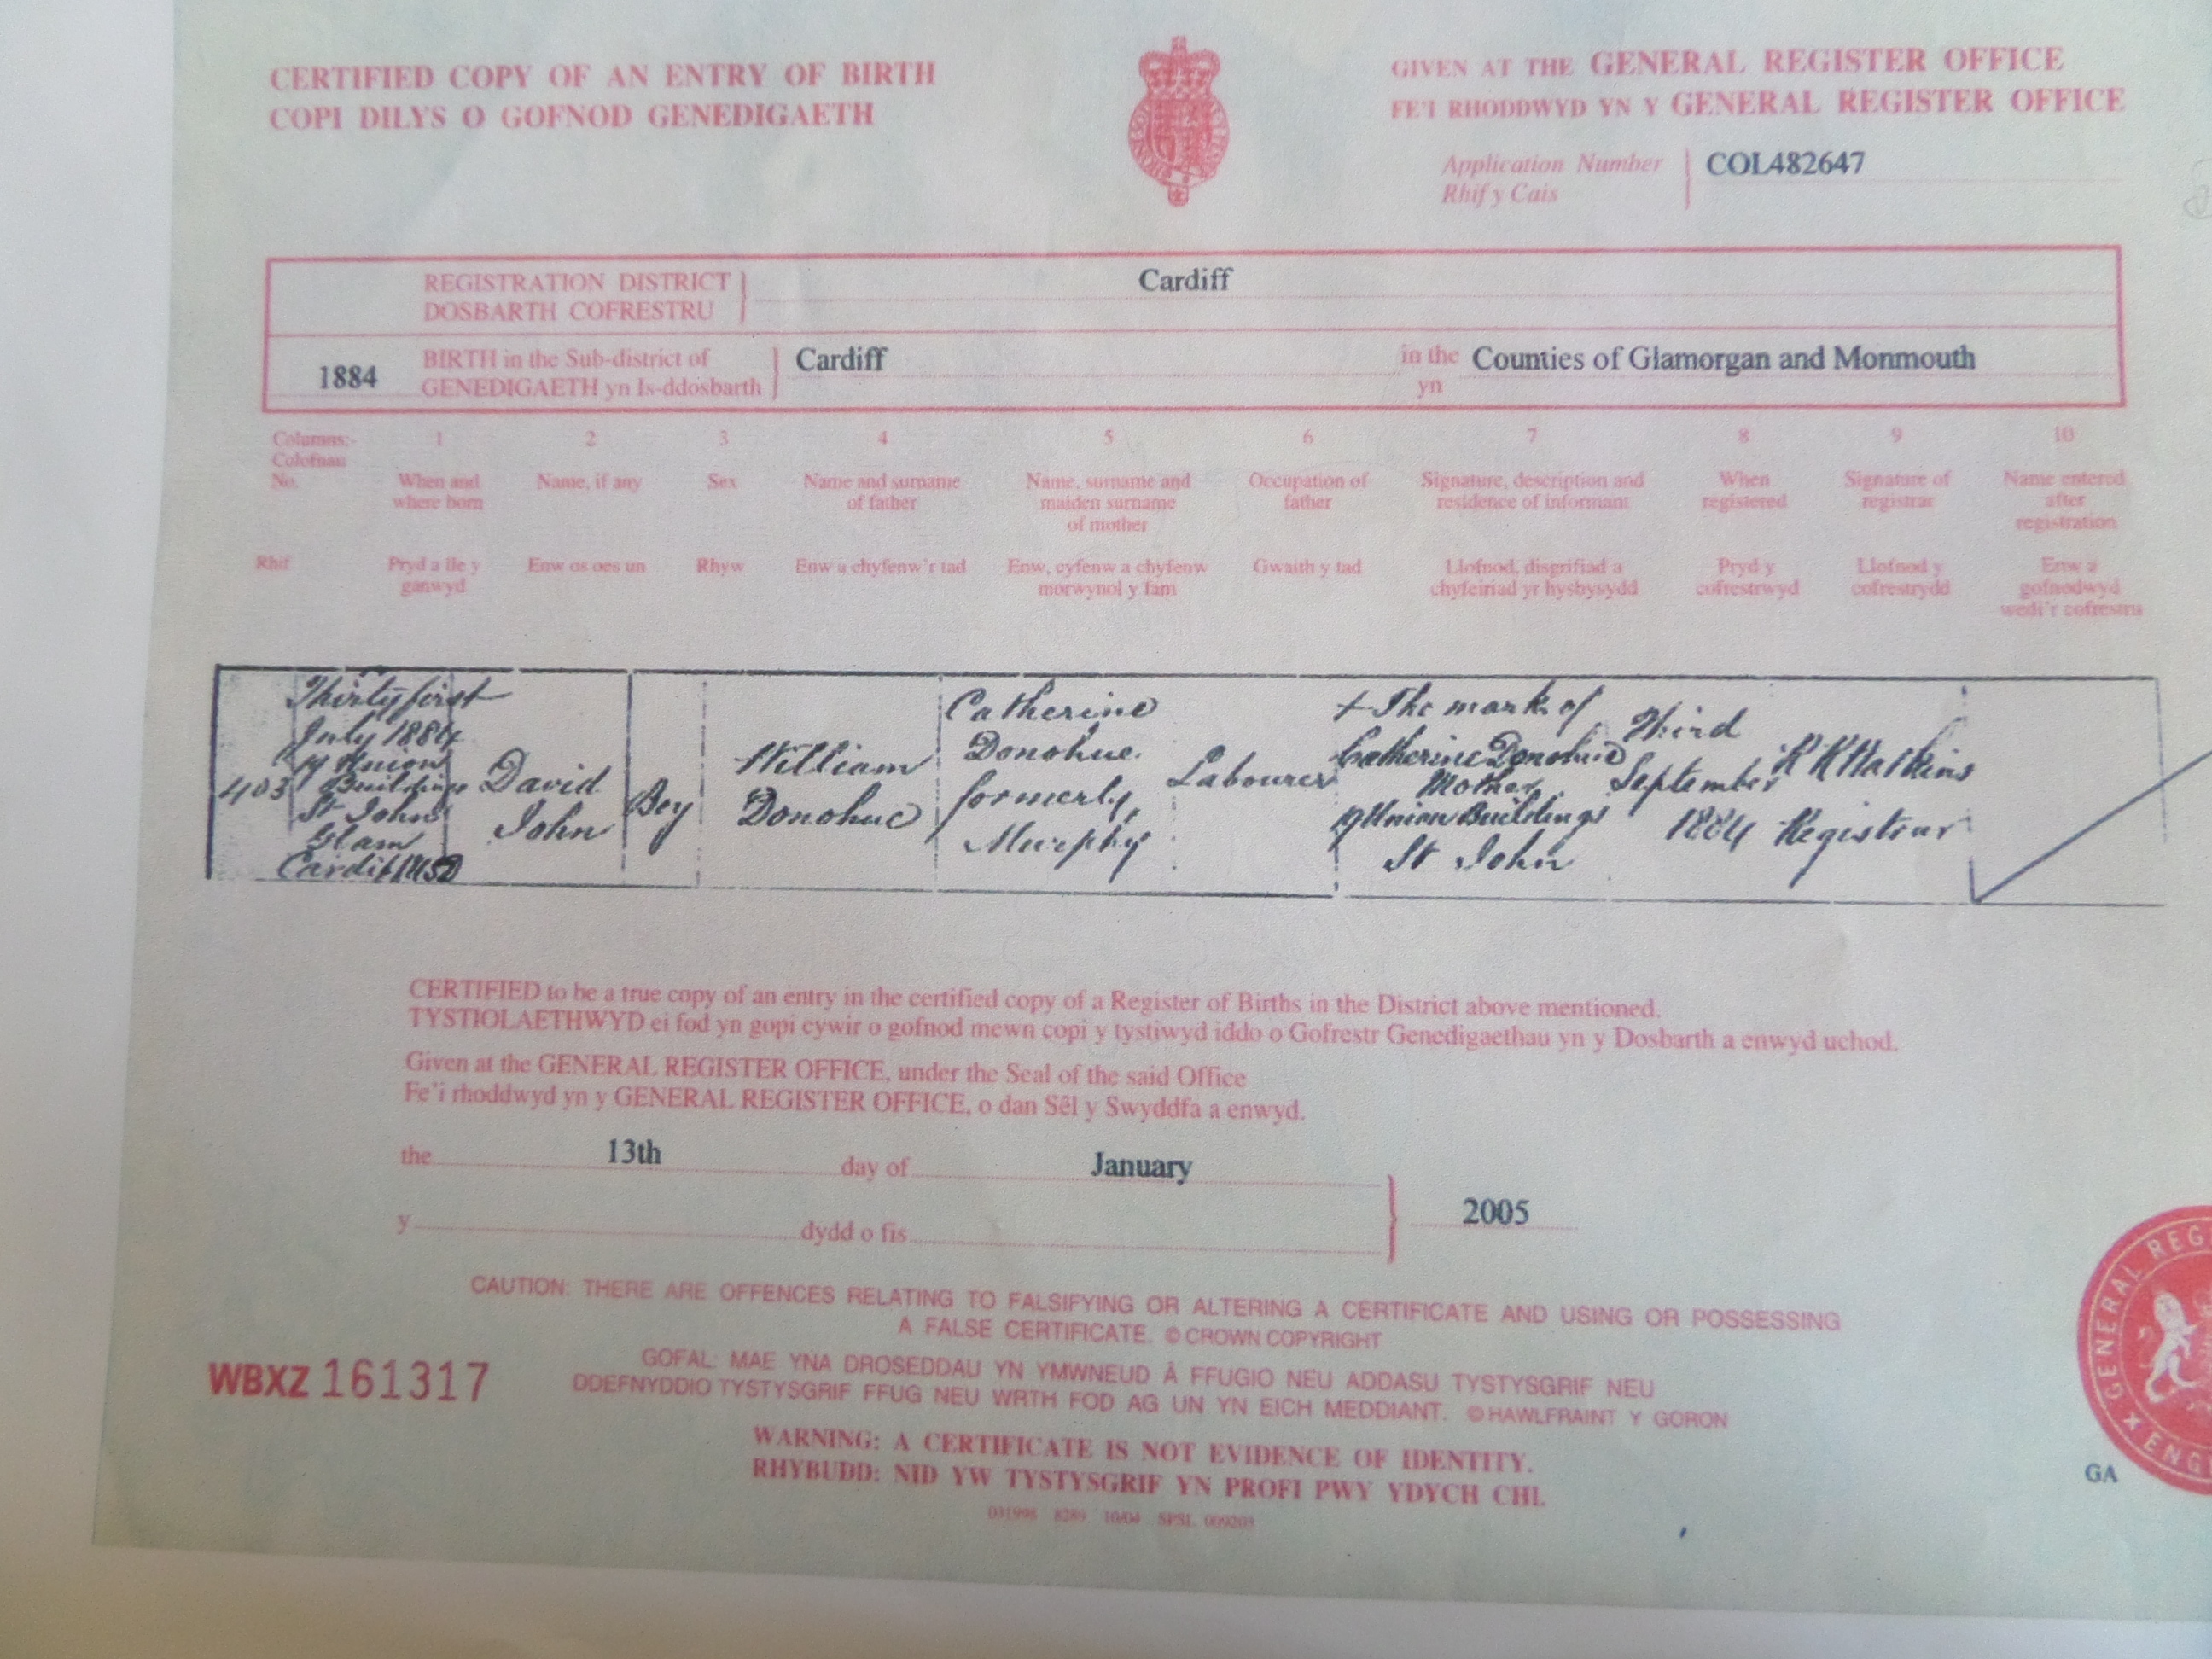 CERTIFIED COPY OF AN ENTRY OF BIRTH
COPI DILYS O GOFNOD GENEDIGAETH
GIVEN AT THE GENERAL REGISTER OFFICE
FE'I RHODDWYD YN Y GENERAL REGISTER OFFICE
Application Number
Rhif y Cais
COL482647
REGISTRATION DISTRICT
DOSBARTH COFRESTRU
Cardiff
1884
BIRTH in the Sub-district of
GENEDIGAETH yn Is-ddosbarth
Cardiff
in the
yn
Counties of Glamorgan and Monmouth
Columns:-
Colofnau
No.
1 2 3 4 5 6 7 8 9 10
When and
where born
Name, if any
Sex
Name and surname
of father
Name, surname and
maiden surname
of mother
Occupation of
father
Signature, description and
residence of informant
When
registered
Signature of
registrar
Name entered
after
registration
Rhif
Pryd a lle y
ganwyd
Enw os oes un
Rhyw
Enw a chyfenw'r tad
Enw, cyfenw a chyfenw
morwynol y fam
Gwaith y tad
Llofnod, disgrifiad a
chyfeiriad yr hysbysydd
Pryd y
cofrestrwyd
Llofnod y
cofrestrydd
Enw a
gofnodwyd
wedi'r cofrestru
403
Thirty first
July 1884
19 Union
Buildings
St Johns
Glam
Cardiff
David
John
Boy
William
Donohue
Catherine
Donohue
formerly
Murphy
Labourer
+ The mark of
Catherine Donohue
Mother
19 Union Buildings
St John
Third
September
1884
Watkins
Registrar
CERTIFIED to be a true copy of an entry in the certified copy of a Register of Births in the District above mentioned.
TYSTIOLAETHWYD ei fod yn gopi cywir o gofnod mewn copi y tystiwyd iddo o Gofrestr Genedigaethau yn y Dosbarth a enwyd uchod.
Given at the GENERAL REGISTER OFFICE, under the Seal of the said Office
Fe'i rhoddwyd yn y GENERAL REGISTER OFFICE, o dan Sêl y Swyddfa a enwyd.
the 13th day of January
2005
y dydd o fis
CAUTION: THERE ARE OFFENCES RELATING TO FALSIFYING OR ALTERING A CERTIFICATE AND USING OR POSSESSING
A FALSE CERTIFICATE. © CROWN COPYRIGHT
GOFAL: MAE YNA DROSEDDAU YN YMWNEUD Â FFUGIO NEU ADDASU TYSTYSGRIF NEU
DDEFNYDDIO TYSTYSGRIF FFUG NEU WRTH FOD AG UN YN EICH MEDDIANT. © HAWLFRAINT Y GORON
WBXZ 161317
WARNING: A CERTIFICATE IS NOT EVIDENCE OF IDENTITY.
RHYBUDD: NID YW TYSTYSGRIF YN PROFI PWY YDYCH CHI.
031998 8289 10/04 SPSL 009205
GENERAL REG
ENG
GA